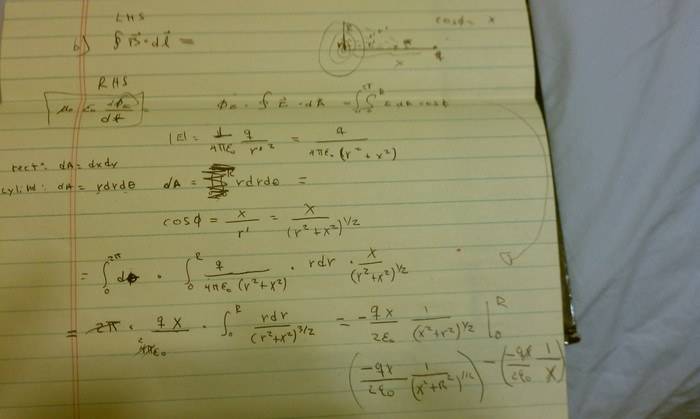 LHS
cosϕ = x
b) ∮ B⃗ · dl⃗ =
R
x
q
RHS
μ₀ ε₀ dΦE/dt =
ΦE = ∮ E⃗ · dA = ∫₀^2π ∫₀^R E dA cosϕ
|E| = 1/4πε₀ q/r'² = q/4πε₀(r² + x²)
rect: dA = dxdy
cylind: dA = rdrdθ dA = rdrdθ =
cosϕ = x/r' = x/(r² + x²)^1/2
= ∫₀^2π dθ · ∫₀^R q/4πε₀(r² + x²) · rdr · x/(r² + x²)^1/2
= 2π · qx/4πε₀ · ∫₀^R rdr/(r² + x²)^3/2 = -qx/2ε₀ 1/(x² + r²)^1/2 |₀^R
(-qx/2ε₀ 1/(x² + R²)^1/2) - (-qx/2ε₀ 1/x)